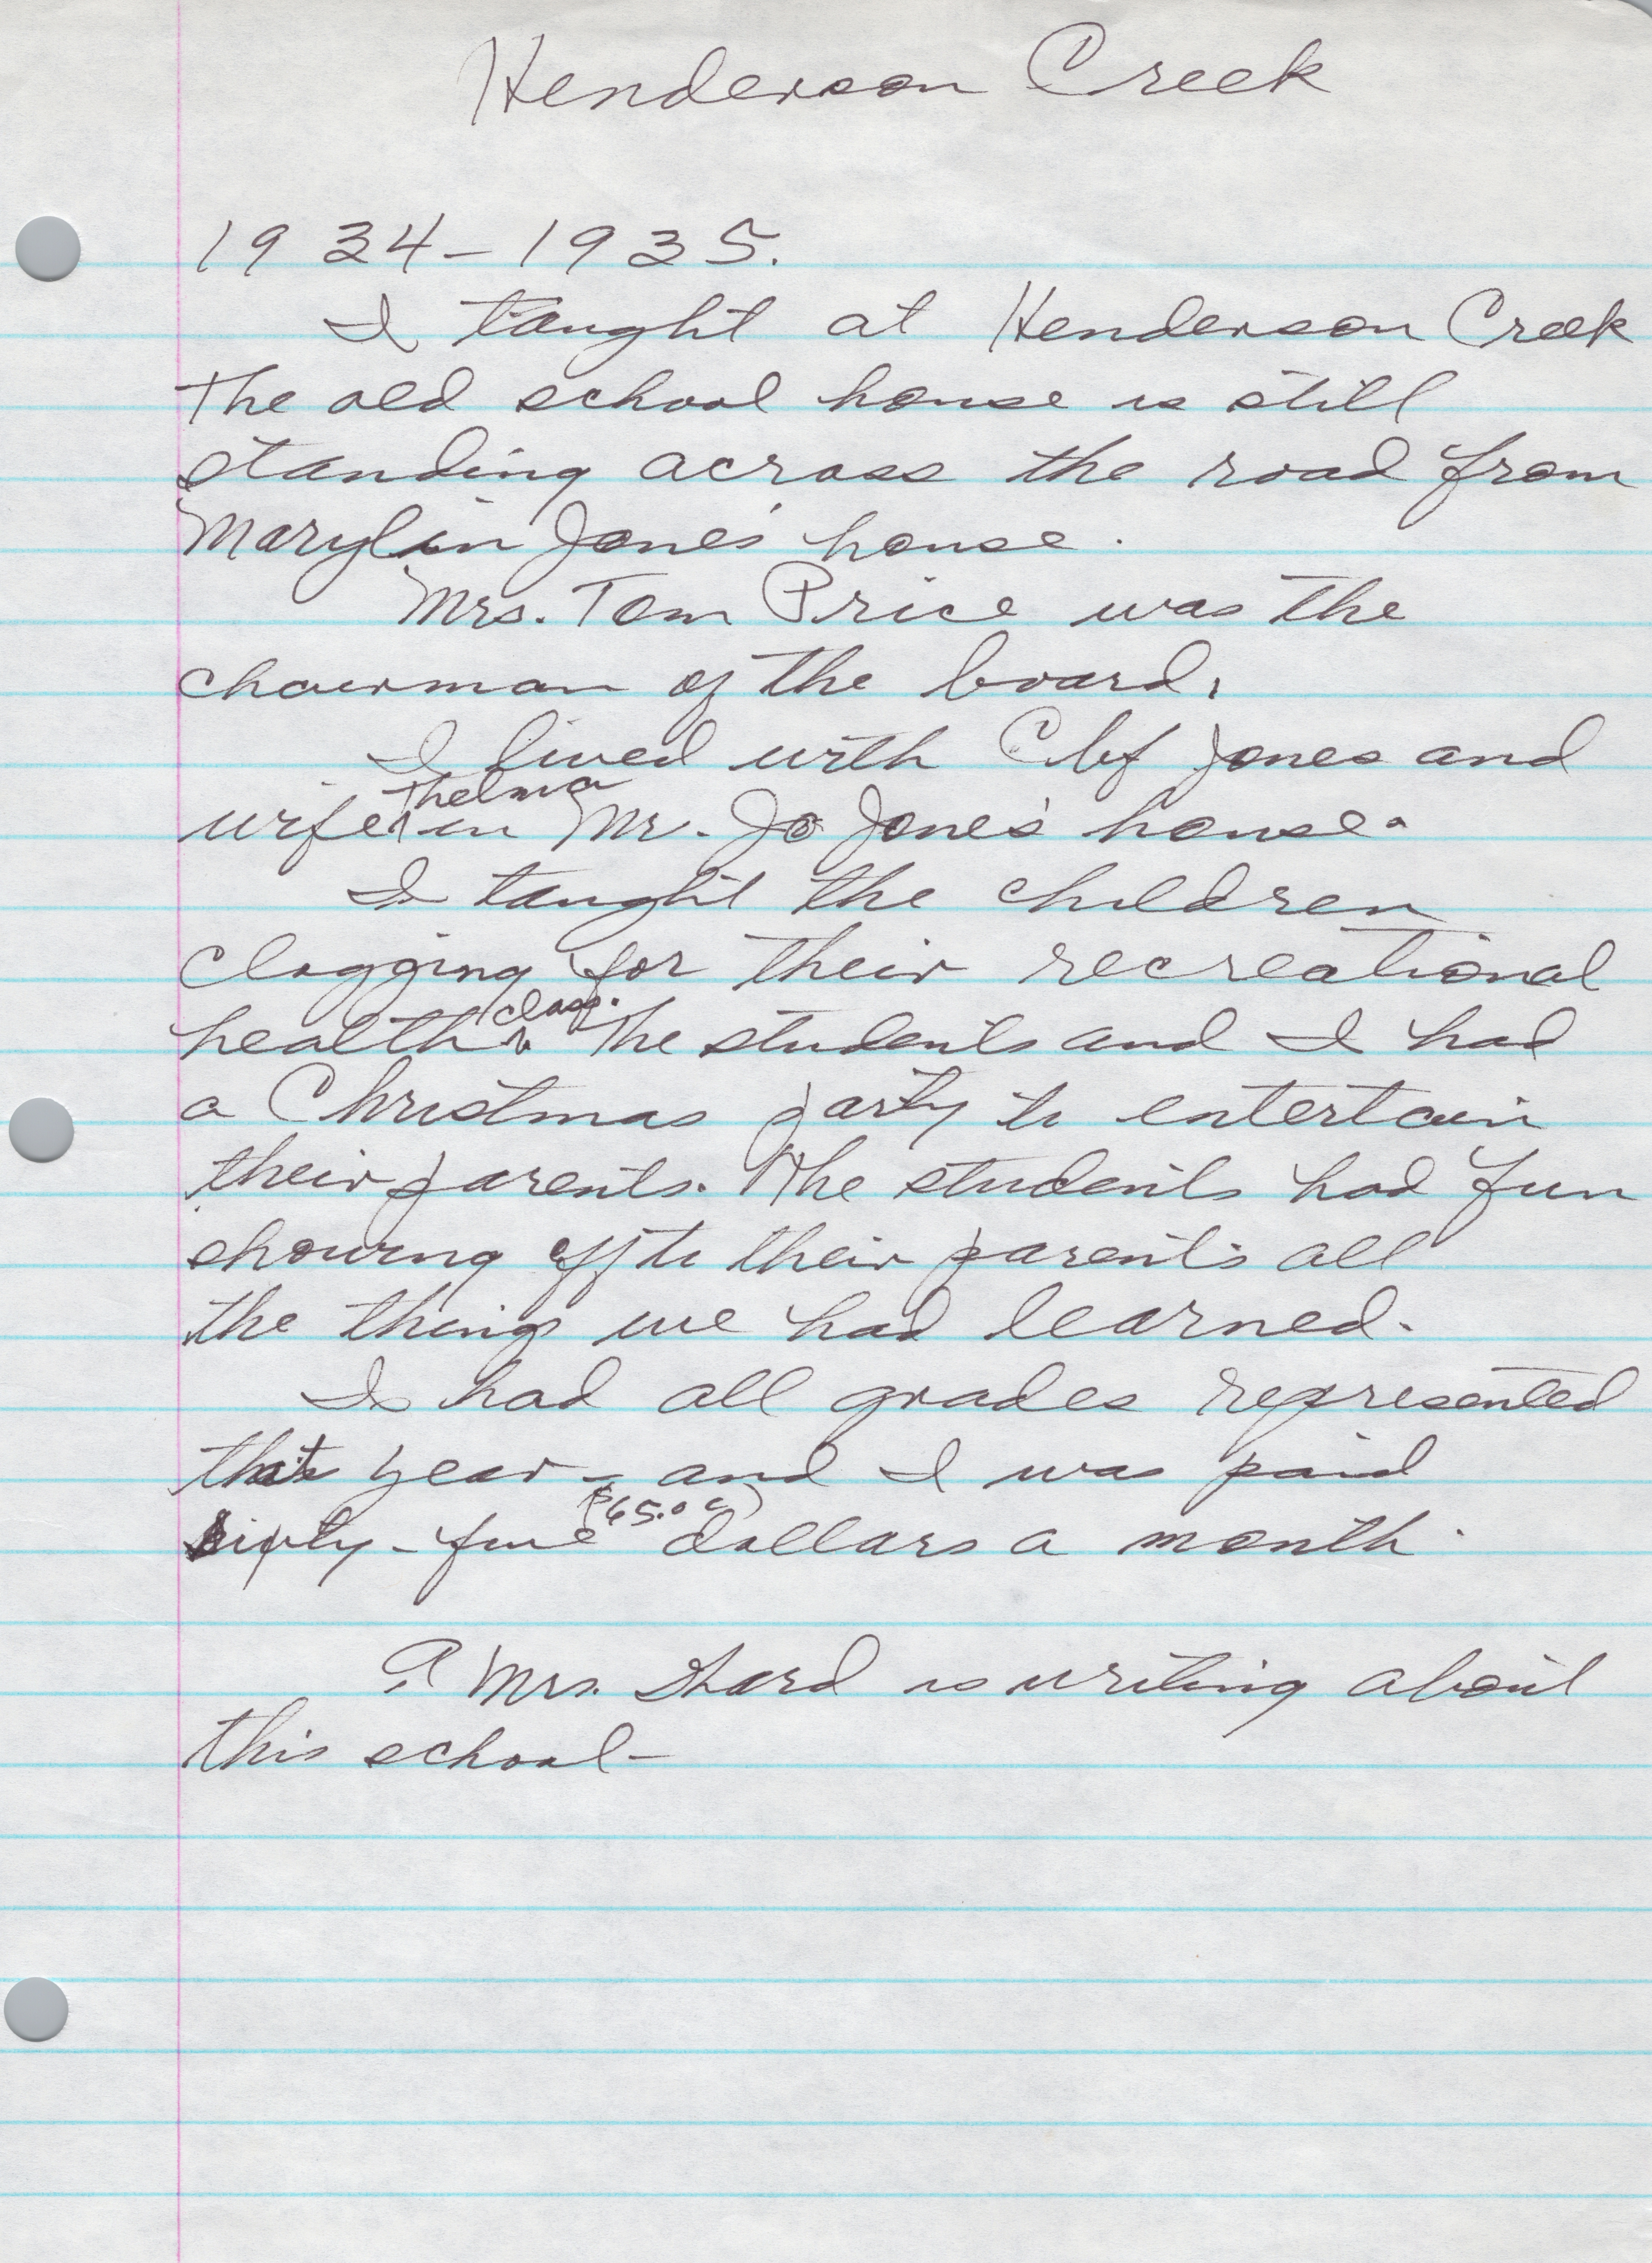 Henderson Creek
1934-1935.
I taught at Henderson Creek
The old school house is still
standing across the road from
Marylin Jones' house.
Mrs. Tom Price was the
chairman of the board.
I lived with Clif Jones and
wife Thelma in Mr. Jo Jones' house.
I taught the children
clogging for their recreational
health class. The students and I had
a Christmas party to entertain
their parents. The students had fun
showing off to their parents all
the things we had learned.
I had all grades represented
that year - and I was paid
sixty-five ($65.00) dollars a month.
A Mrs. is writing about
this school-